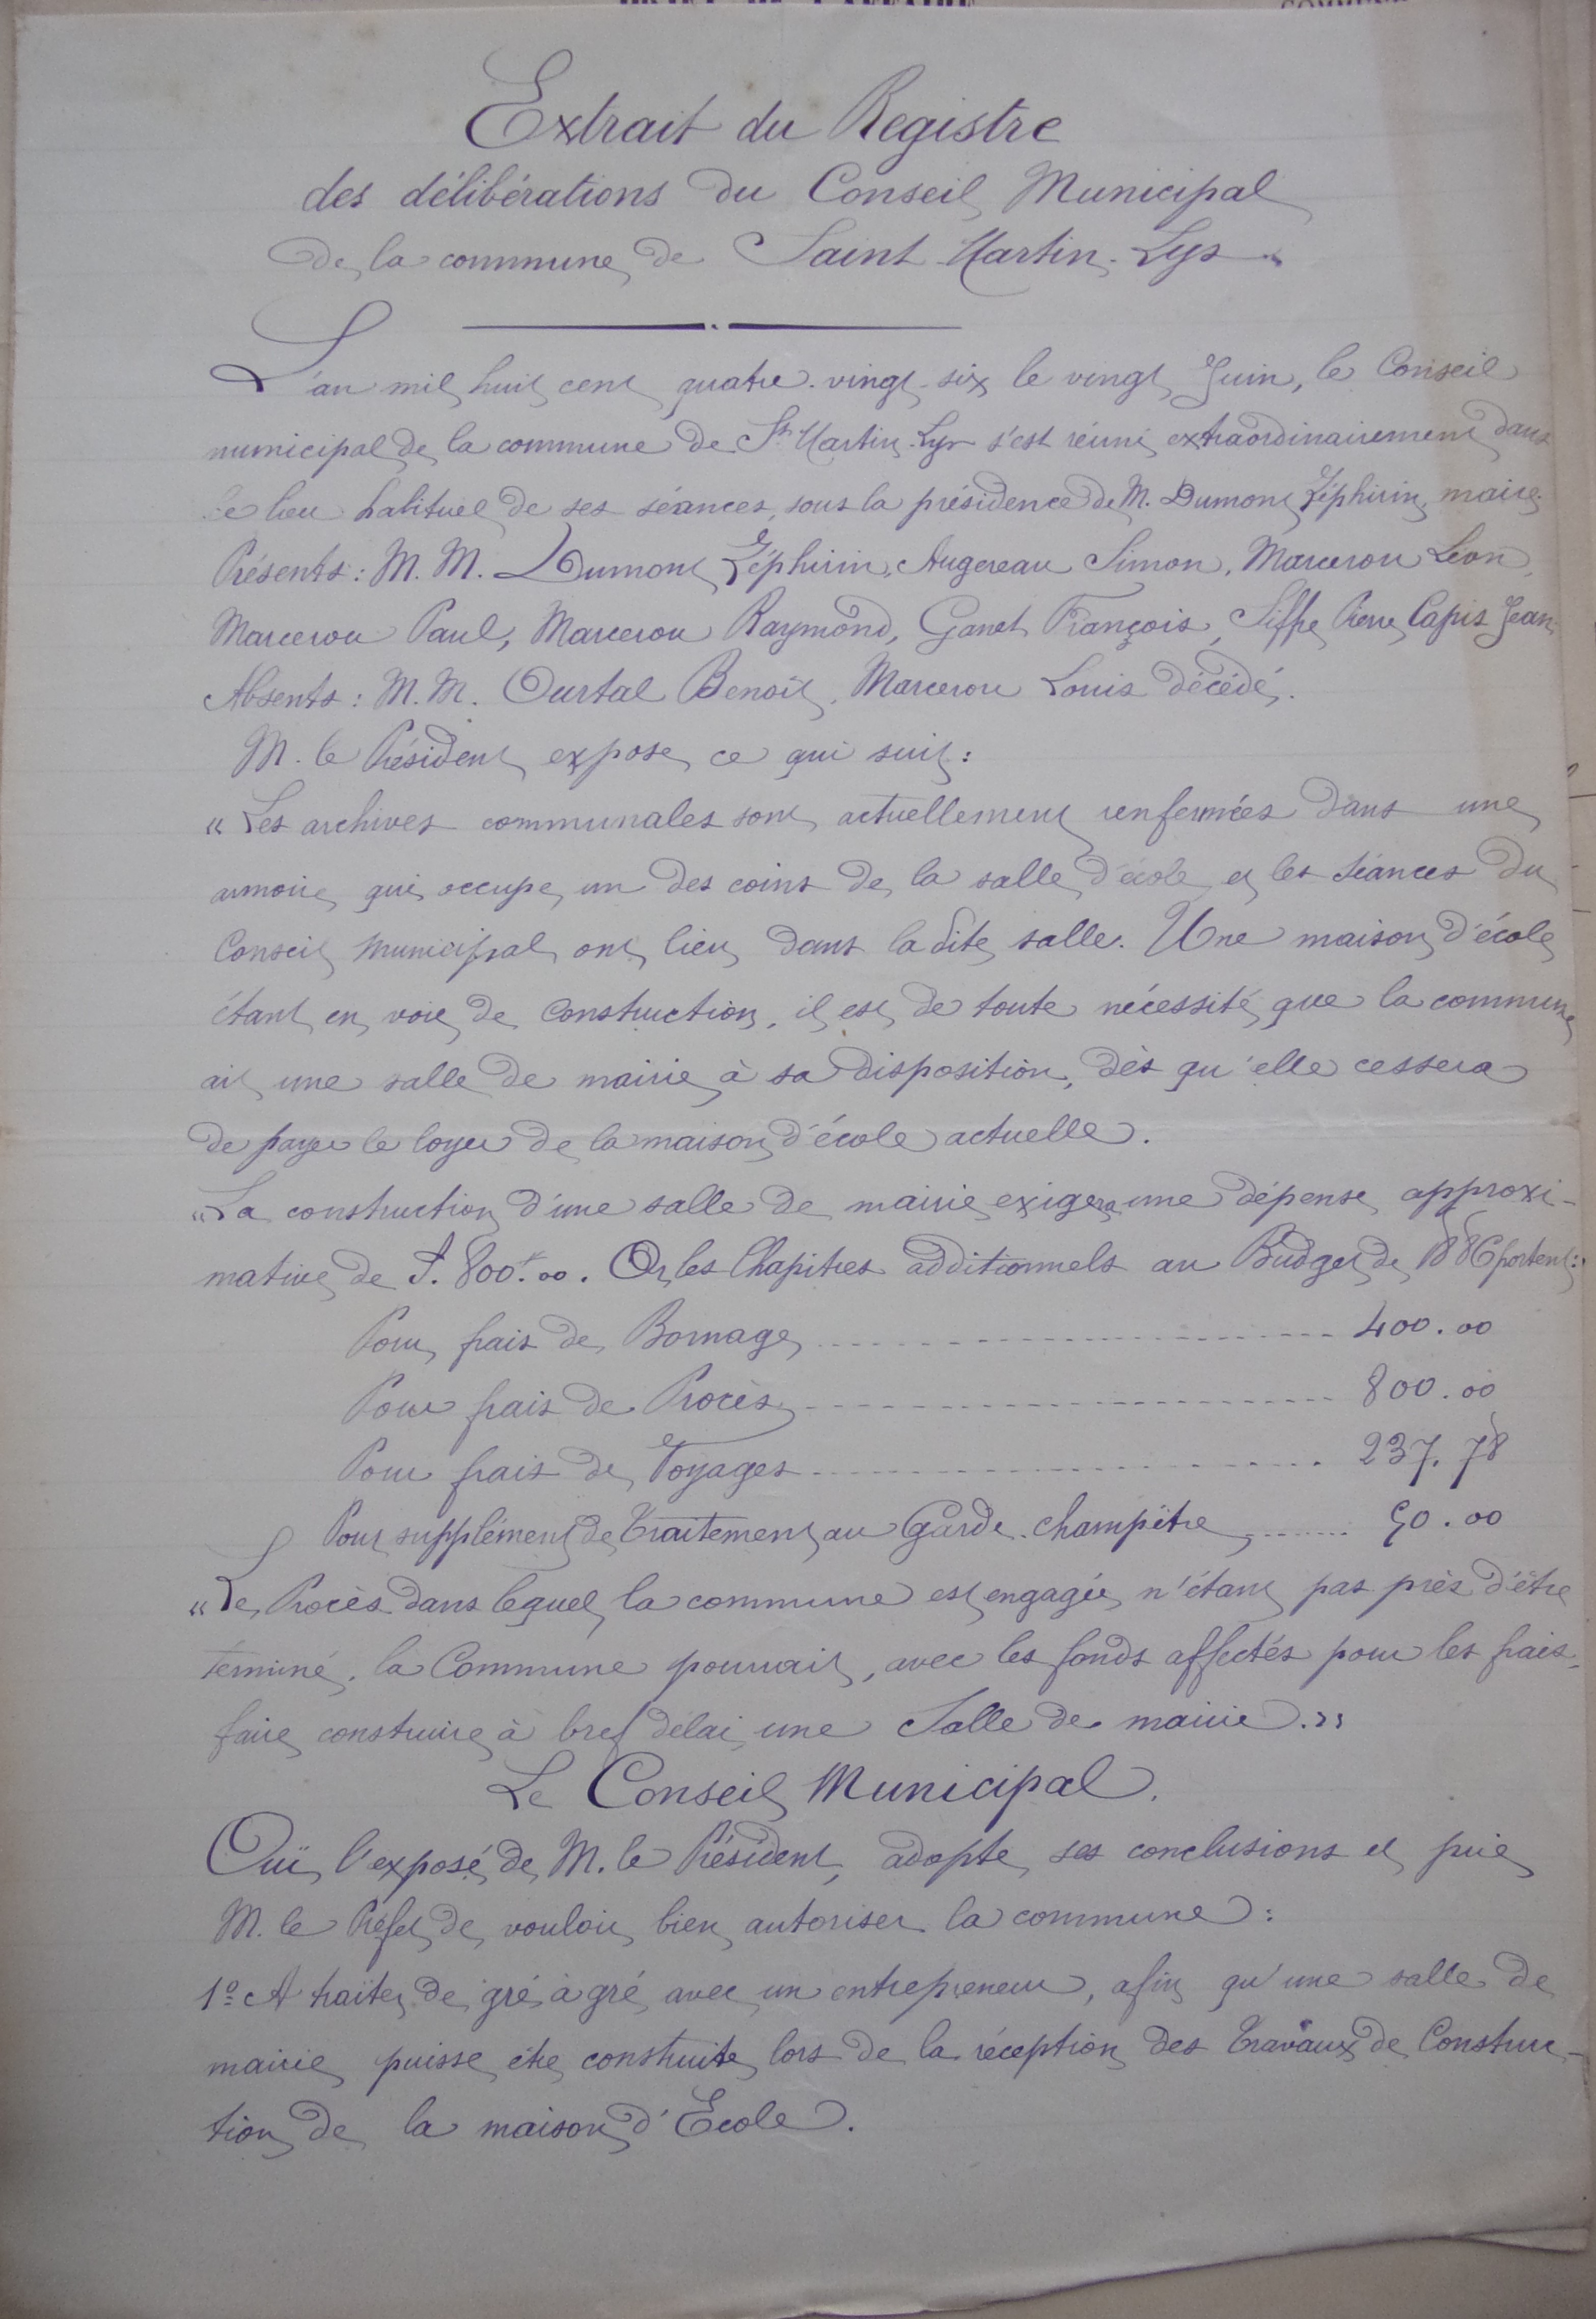 Extrait du Registre
des délibérations du Conseil Municipal
de la commune de Saint-Martin-Lys
L'an mil huit cent quatre-vingt-six le vingt Juin, le Conseil
municipal de la commune de St Martin-Lys s'est réuni extraordinairement dans
le lieu habituel de ses séances, sous la présidence de M. Dumont Zéphirin, maire.
Présents : M. M. Dumont Zéphirin, Augereau Simon, Marcerou Léon,
Marcerou Paul, Marcerou Raymond, Ganet François, Siffre Pierre, Capis Jean.
Absents : M. M. Ourtal Benoît, Marcerou Louis décédé.
M. le Président expose ce qui suit :
« Les archives communales sont actuellement renfermées dans une
armoire qui occupe un des coins de la salle d'école et les séances du
Conseil Municipal ont lieu dans la dite salle. Une maison d'école
étant en voie de Construction, il est de toute nécessité que la commune
ait une salle de mairie à sa disposition, dès qu'elle cessera
de payer le loyer de la maison d'école actuelle.
« La construction d'une salle de mairie exigera une dépense approxi-
mative de f. 800f.00. Or, les Chapitres additionnels au Budget de 1886 portent :
Pour frais de Bornage 400.00
Pour frais de Procès 800.00
Pour frais de Voyages 237.78
Pour supplément de Traitement au Garde-champêtre 50.00
« Le Procès dans lequel la commune est engagée n'étant pas près d'être
terminé, la Commune pourrait, avec les fonds affectés pour les frais,
faire construire à bref délai une Salle de mairie. »
Le Conseil Municipal.
Ouï l'exposé de M. le Président, adopte ses conclusions et prie
M. le Préfet de vouloir bien autoriser la commune :
1º A traiter de gré à gré avec un entrepreneur, afin qu'une salle de
mairie puisse être construite lors de la réception des Travaux de Construc-
tion de la maison d'Ecole.